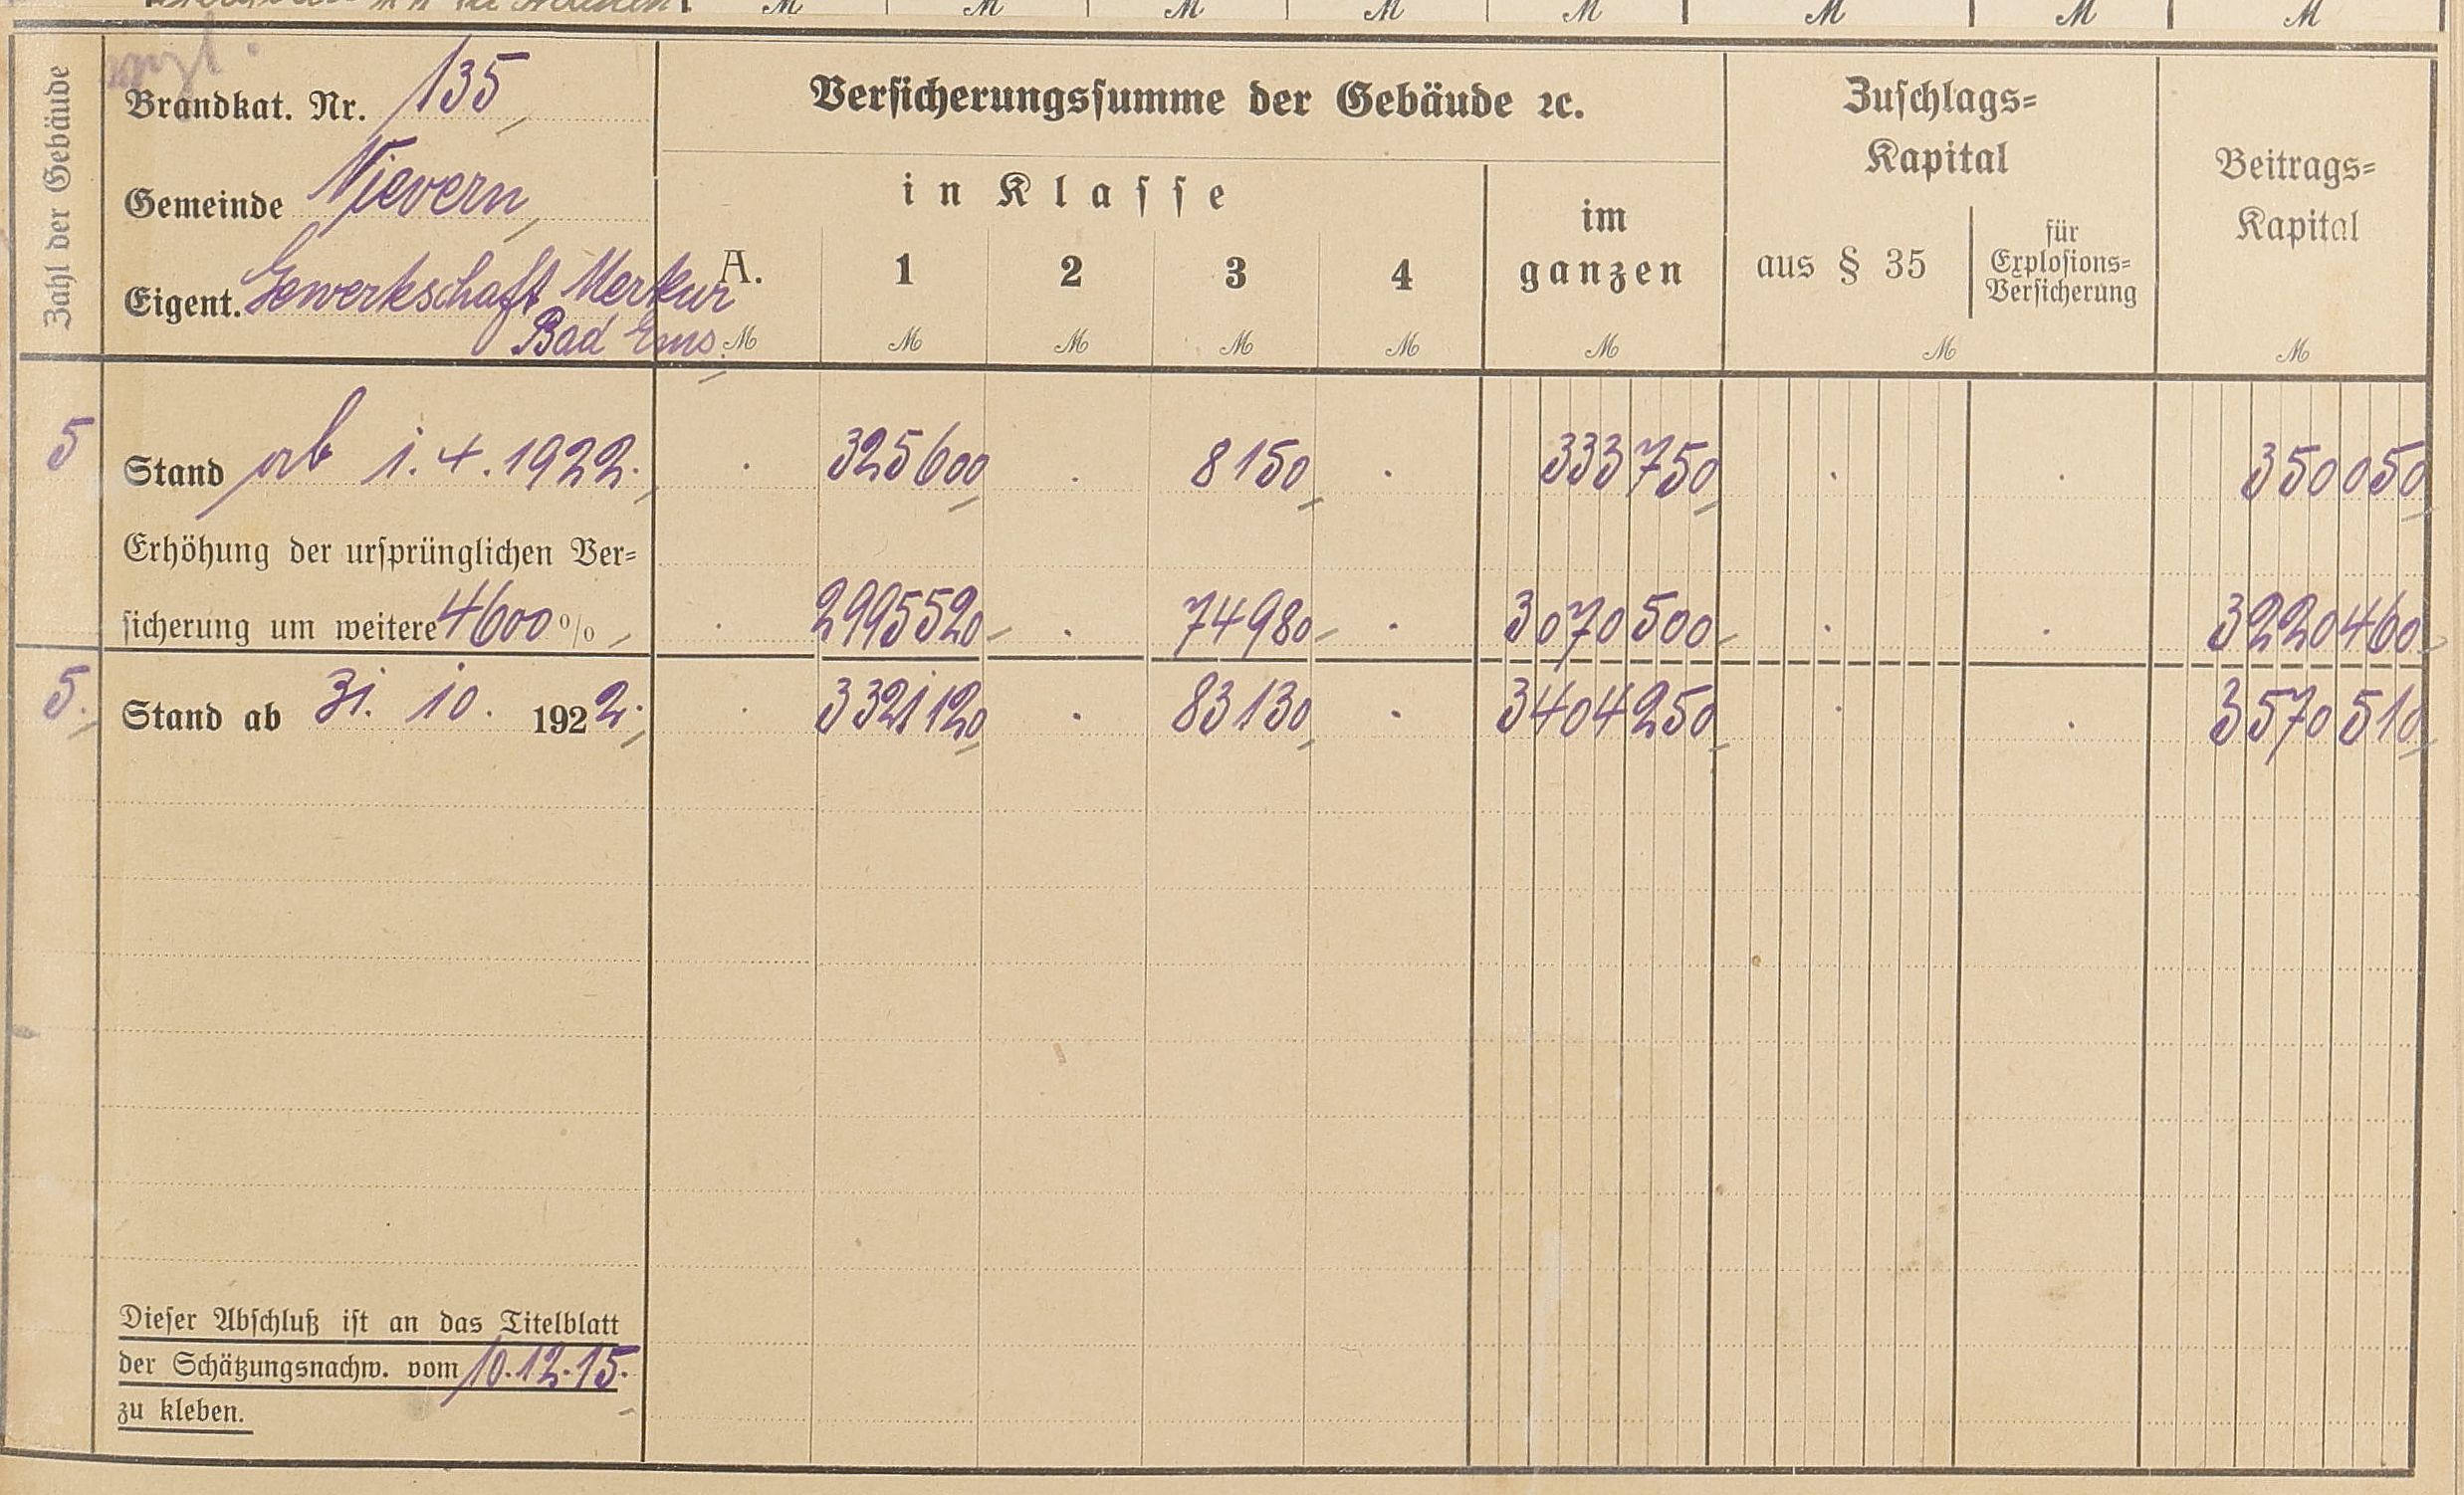 M M M M M M M M
Zahl der Gebäude
Brandkat. Nr. 135
Gemeinde Nievern,
Eigent. Gewerkschaft Merkur
Bad Ems.
Versicherungssumme der Gebäude ꝛc.
in Klasse
A. 1 2 3 4
im
ganzen
Zuschlags-
Kapital
aus § 35
für
Explosions-
Versicherung
Beitrags-
Kapital
M M M M M M M M
5 Stand ab 1.4.1922. . 325600 . 8150 . 333750 . . 350050
Erhöhung der ursprünglichen Ver-
sicherung um weitere 4600% . 2995520 . 74980 . 3070500 . . 3220460
5. Stand ab 31. 10. 1922. . 3321120 . 83130 . 3404250 . . 3570510
Dieser Abschluß ist an das Titelblatt
der Schätzungsnachw. vom 10.12.15.
zu kleben.